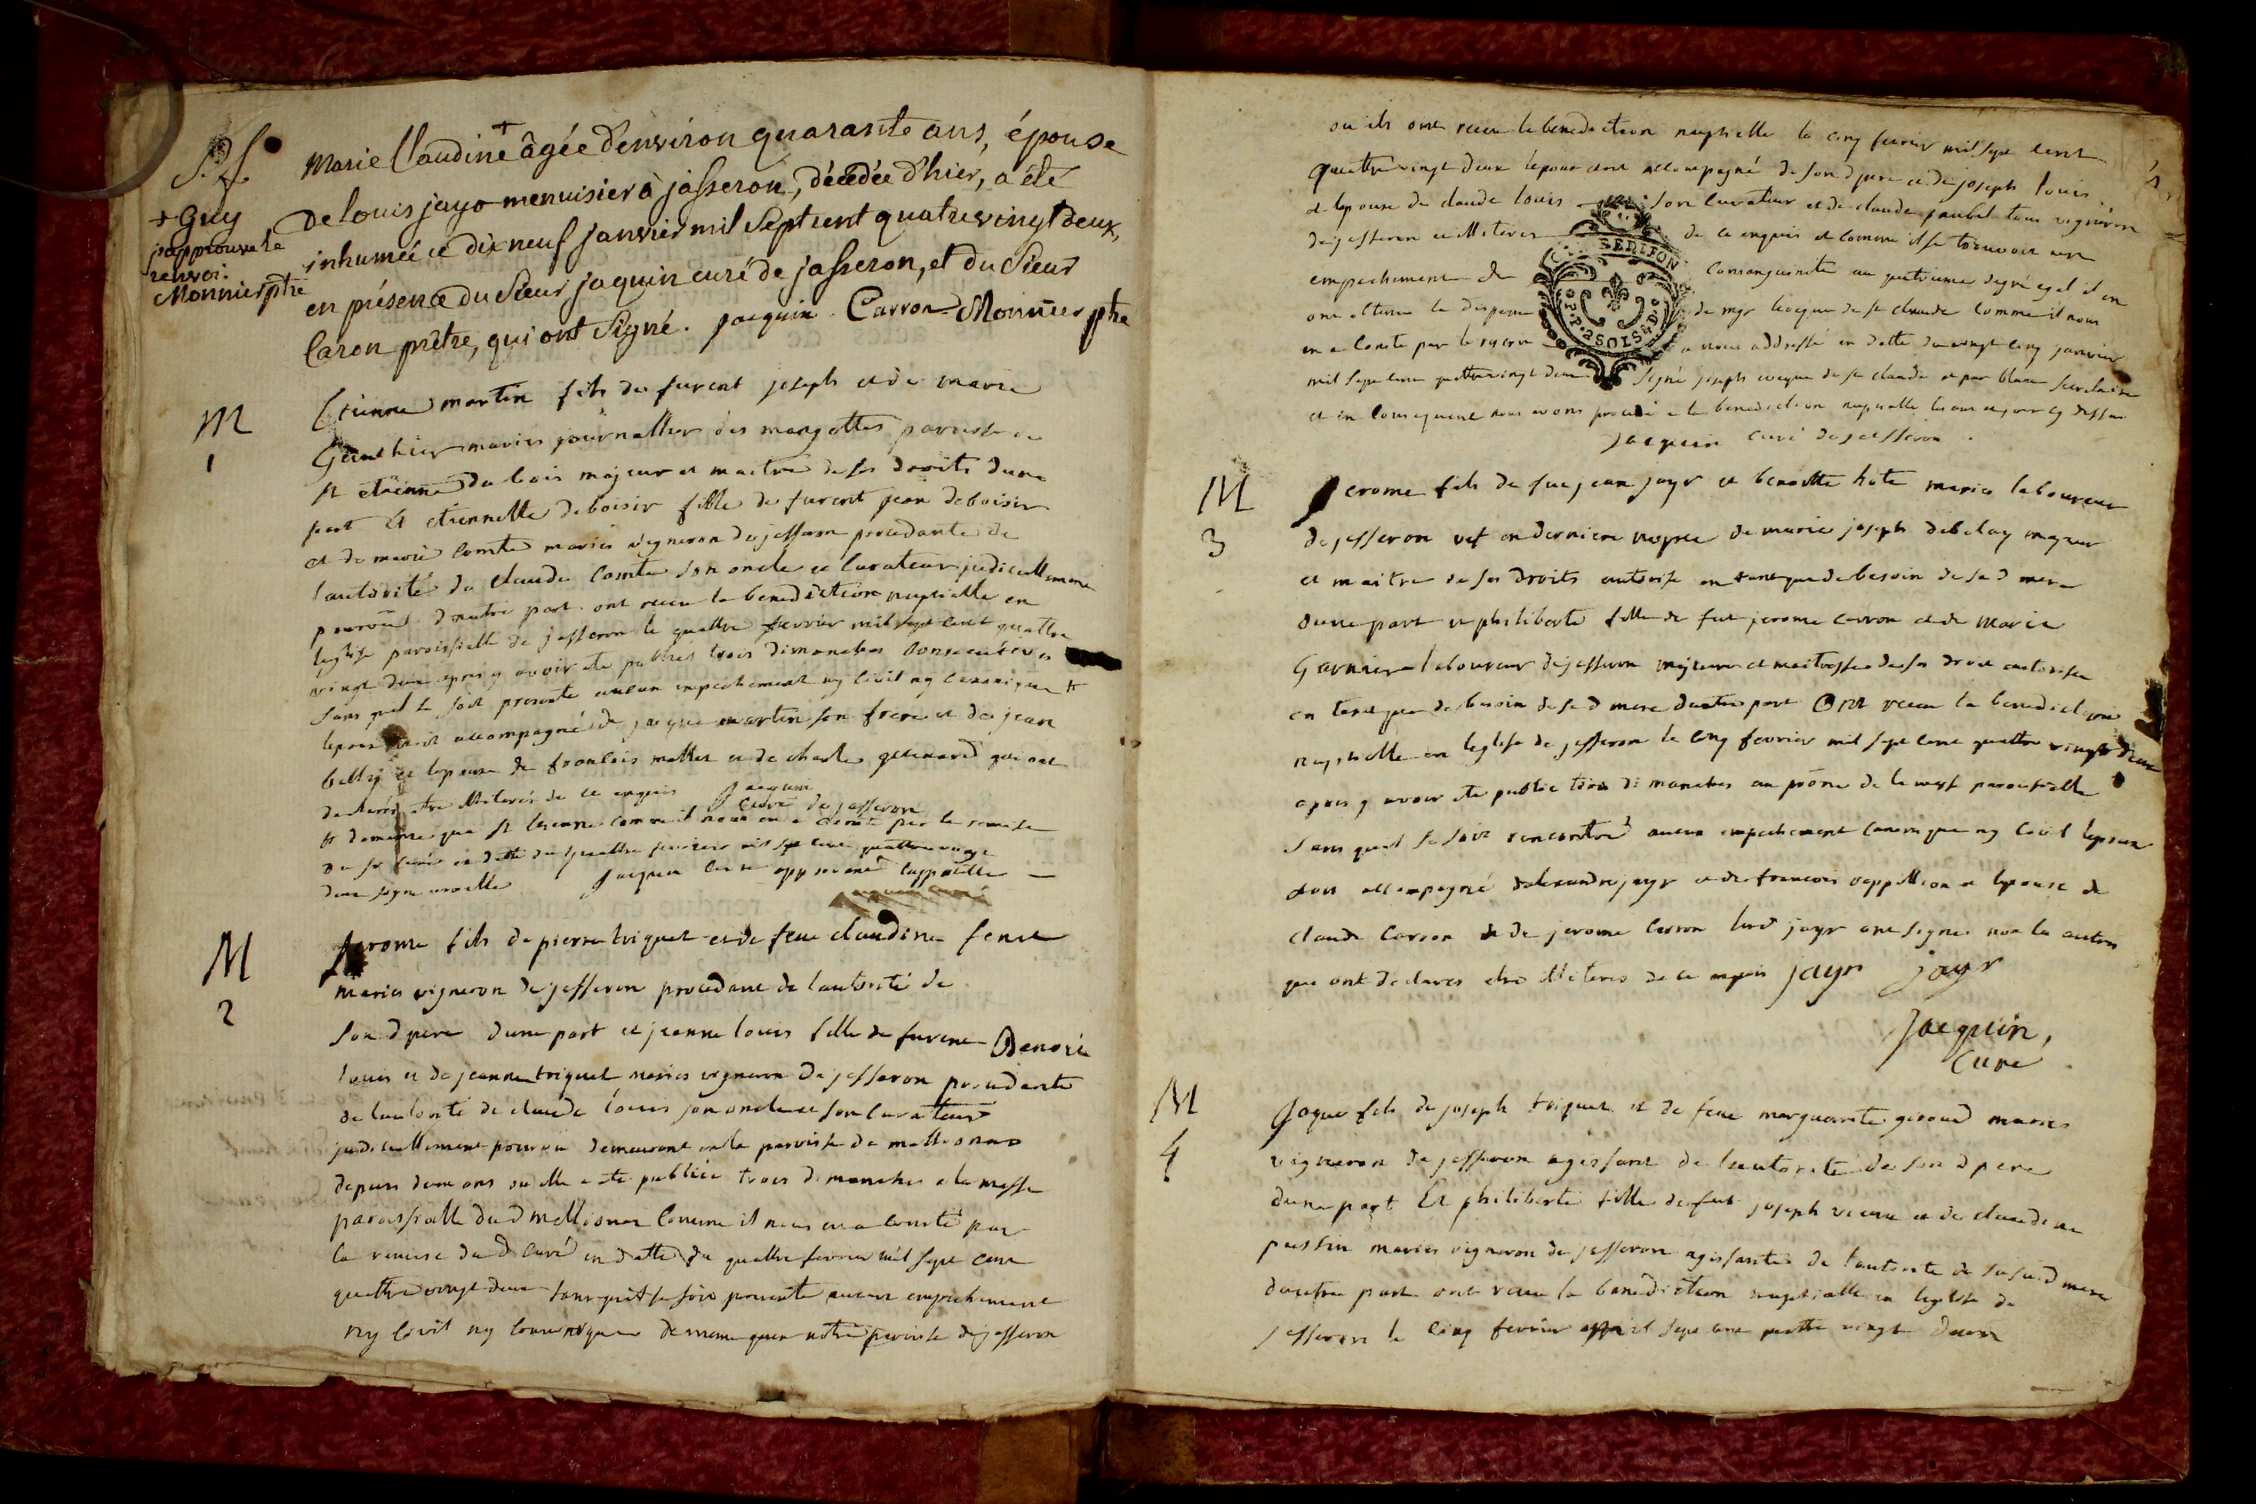 S. f.
+ Guy
j'approuve le
renvoi.
Monnier ptre
Marie Claudine + âgée d'environ quarante ans, épouse
de Louis jayr menuisier à jasseron, décédée d'hier, a été
inhumée ce dix neuf janvier mil Sept cent quatre vingt deux,
en présence du Sieur jaquin curé de jasseron, et du Sieur
Caron prêtre, qui ont Signé. jacquin. Carron. Monnier ptre
M
1
Etienne martin fils de furent joseph et de marie
Gauthier maries journallier des mangettes paroisse de
st etienne du bois majeur et maitre de ses droits dune
part Et etiennette deboisir fille de furent jean deboisir
et de marie comte maries vigneron de jasseron procedante de
lautorité de claude Comte son oncle et Curateur judiciellement
pourvû dautre part ont recu la benediction nuptialle en
leglise paroissialle de jasseron le quattre fevrier mil sept cent quattre
vingt deux apres y avoir ete publies trois dimanches consecutives
sans quil se soit presente aucun empechement ny civil ny canonique
lepoux etoit accompagné de jacque martin son frere et de jean
et lepouse de francois mallet et de charle guinard qui ont
declarés etre illiterés de ce enquis Jacquin
Curé de jasseron
de meme que st etienne comme il nous en a consté par la remise
du sr curé en datte du quattre fevrier mil sept cent quattre vingt
deux signe Jacquin curé approuvant lappostille
M
2
Jerome fils de pierre triquet et de feue claudine ferret
maries vigneron de jasseron procedant de lautorité de
son d pere dune part et jeanne louis fille de furent Benoit
louis et de jeanne triquet maries vigneron de jasseron procedante
de lautorité de claude louis son oncle et son curateur
judiciellement pourvu demeurant en la paroisse de mellionas
depuis deux ans ou elle a ete publiée trois dimanches a la messe
paroissialle du d mellionas comme il nous en a consté par
la remise du d curé en datte du quattre fevrier mil sept cent
quattre vingt deux sans quil se soit presente aucun empechement
ny civil ny canonique de meme quen notre paroisse de jasseron
ou ils ont recu la benediction nuptialle le cinq fevrier mil sept cent
quattre vingt deux lepoux etoit accompagné de son d pere et de joseph louis
et lepouse de claude louis son curateur et de claude paubel tous vignerons
de jasseron illiteres de ce enquis et comme il se trouvoit un
empechement de consanguinité au quatrieme degré egal ils en
ont obtenu la dispense de mgr leveque de st claude comme il nous
en a consté par le rescrit a nous addressé en datte du vingt cinq janvier
mil sept cent quattre vingt deux signé joseph eveque de st claude et par blanc secretaire
et en consequence nous avons procédé a la benediction nuptialle les an et jour cy dessus
Jacquin curé de jasseron.
SERIJON
P.P. 2 SOLS 8 D.
M
3
Jerome fils de feu jean jayr et benoitte hote maries laboureur
de jasseron vef en derniere nopce de marie joseph debelay majeur
et maitre de ses droits autorise en tant que de besoin de sa d mere
dune part et philiberte fille de feu jerome carron et de Marie
Garnier laboureur de jasseron majeure et maitresse de ses droits autorisée
en tant que de besoin de sa d mere dautre part Ont recu la benediction
nuptialle en leglise de jasseron le cinq fevrier mil sept cent quattre vingt deux
apres y avoir ete publie trois dimanches au prône de la messe paroissialle
sans quil se soit rencontré aucun empechement canonique ny civil lepoux
etoit accompagné dalexandre jayr et de francois et lepouse de
claude Carron et de jerome Carron lesd jayr ont signes non les autres
qui ont declares etre illiteres de ce enquis jayr jayr
Jacquin,
Cure
M
4
Jaque fils de joseph triquet et de feue marguerite giroud maries
vigneron de jasseron agissant de lautorité de son d pere
dune part Et philiberte fille de fut joseph et de claudine
maries vigneron de jasseron agissante de lautorité de sa d mere
dautre part ont recu la benediction nuptialle en leglise de
jasseron le cinq fevrier mil sept cent quattre vingt deux